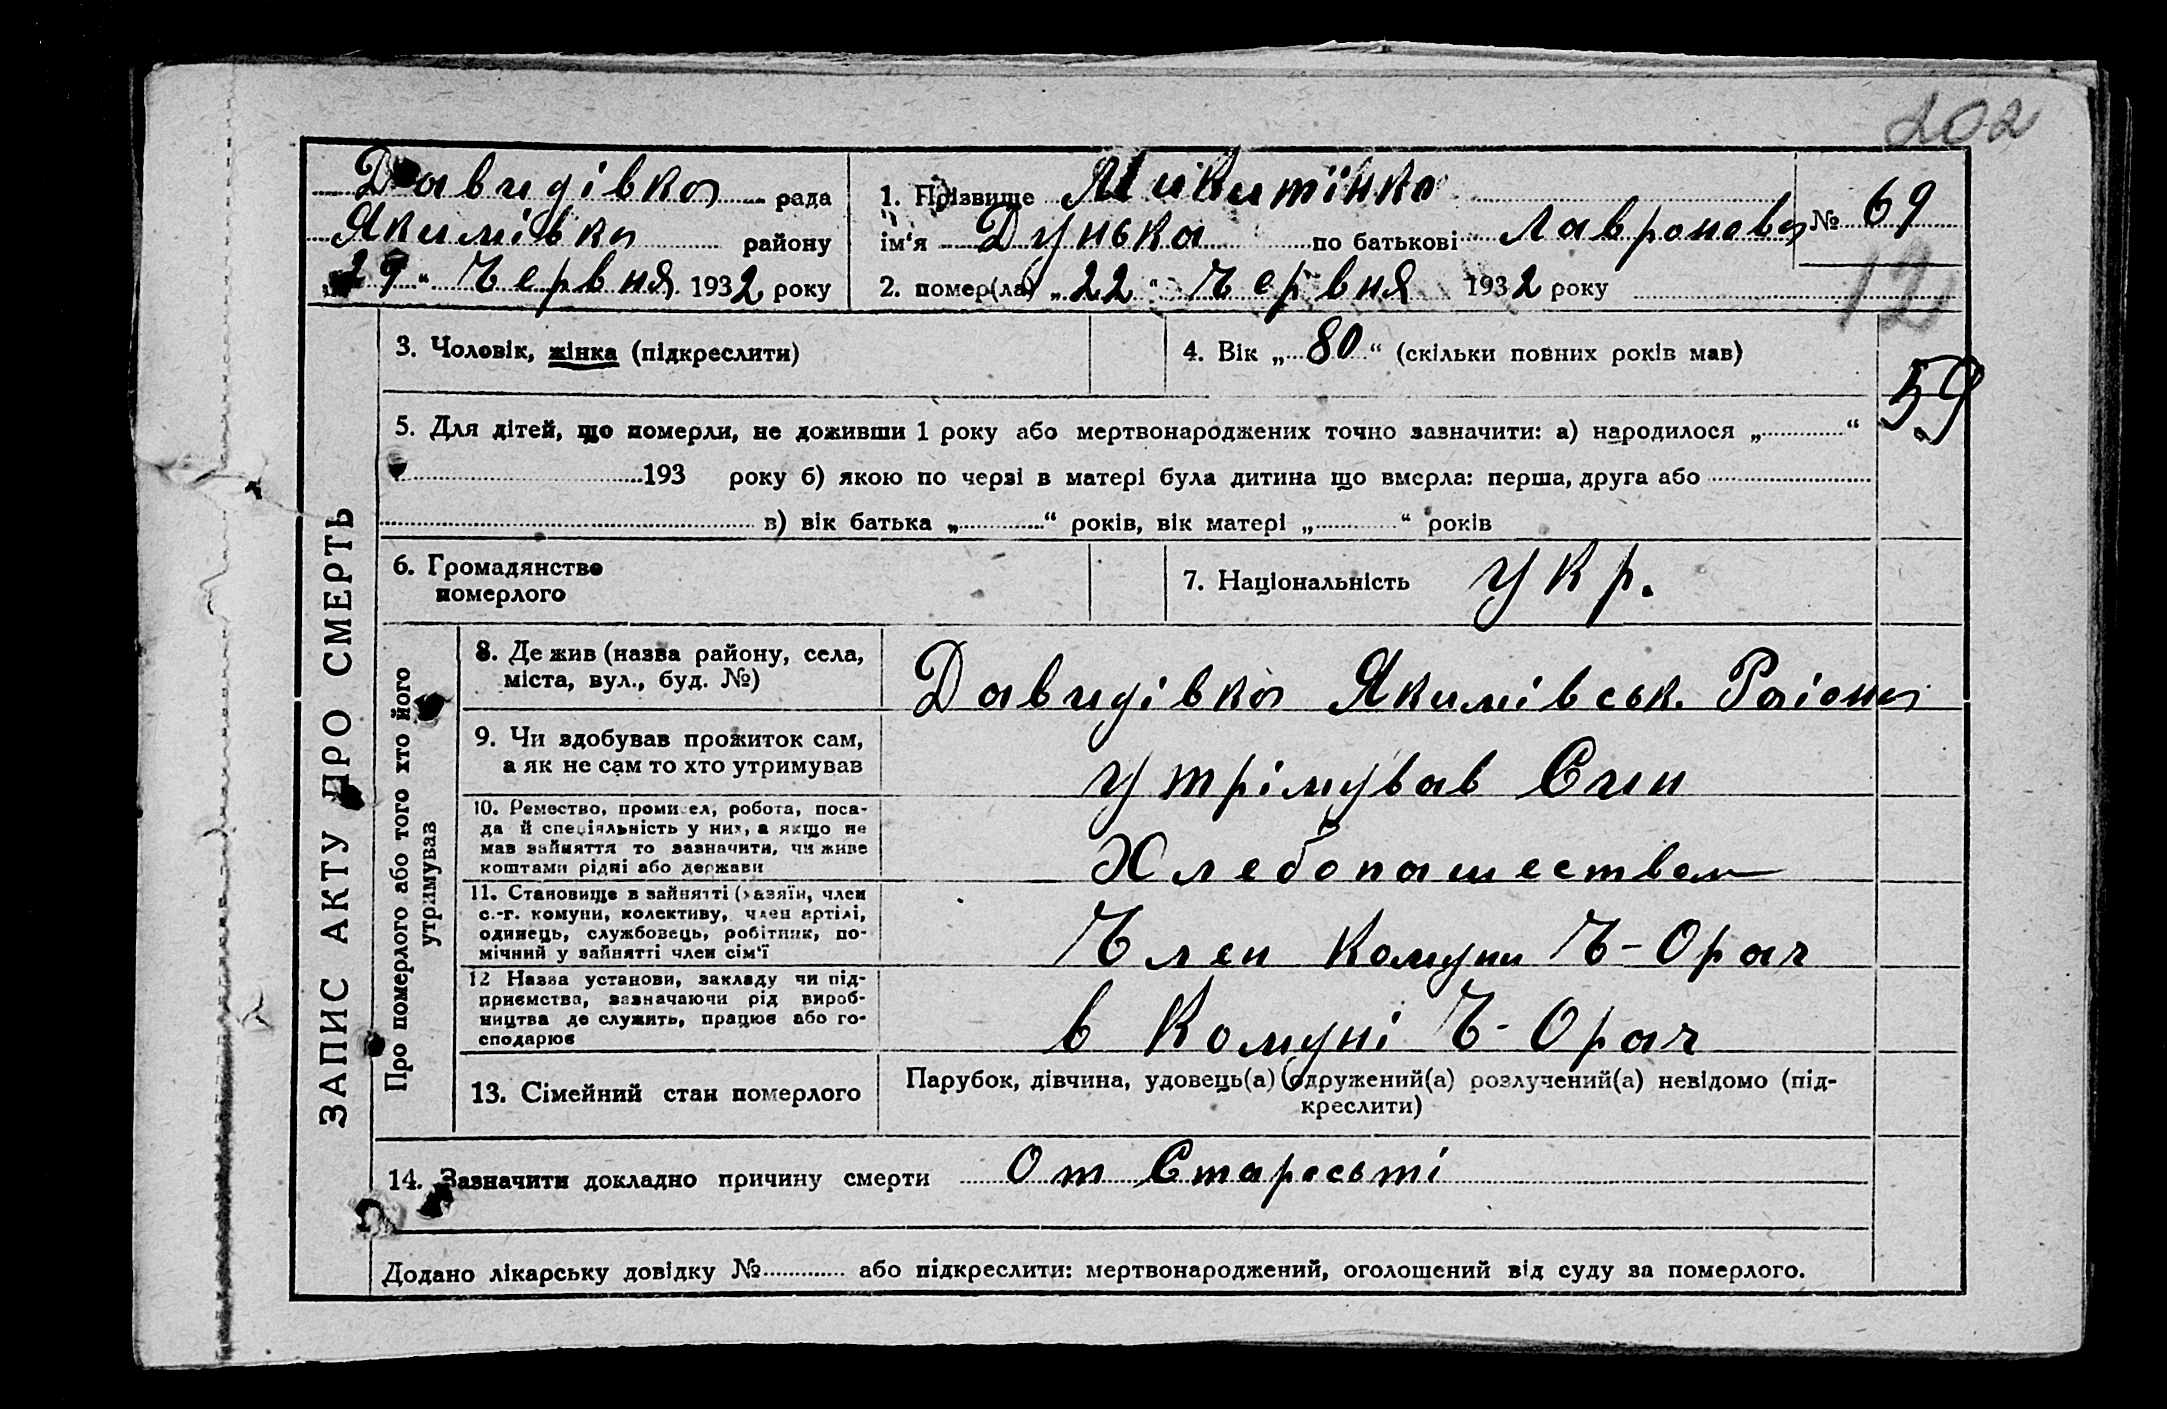 202
Давидівка рада
Якимівка району
„29“ Червня 1932 року
1. Прізвище Микитінка
ім'я Дунька по батькові Лавронова № 69
2. помер(ла) „22“ Червня 1932 року
12
3. Чоловік, жінка (підкреслити)
4. Вік „80“ (скільки повних років мав)
59
5. Для дітей, що померли, не доживши 1 року або мертвонароджених точно зазначити: а) народилося „............“
............193 року б) якою по черзі в матері була дитина що вмерла: перша, друга або ............
............ в) вік батька „............“ років, вік матері „............“ років
6. Громадянство
померлого
7. Національність укр.
ЗАПИС АКТУ ПРО СМЕРТЬ
Про померлого або того хто його
утримував
8. Де жив (назва району, села,
міста, вул., буд. №)
Давидівка Якимівськ. Раіона
9. Чи здобував прожиток сам,
а як не сам то хто утримував
утрімував Син
10. Ремество, промисел, робота, поса-
да й спеціяльність у них, а якщо не
мав зайняття то зазначити, чи живе
коштами рідні або держави
Хлебопашеством
11. Становище в зайнятті (хазяїн, член
с.-г. комуни, колективу, член артілі,
одинець, службовець, робітник, по-
мічний у зайнятті член сім'ї
Член Комуни Ч-Орач
12 Назва установи, закладу чи під-
приємства, зазначаючи рід вироб-
ництва де служить, працює або го-
сподарює
в Комуні Ч-Орач
13. Сімейний стан померлого
Парубок, дівчина, удовець(а) одружений(а) розлучений(а) невідомо (під-
креслити)
14. Зазначити докладно причину смерти От Старосьті
Додано лікарську довідку №............ або підкреслити: мертвонароджений, оголошений від суду за померлого.